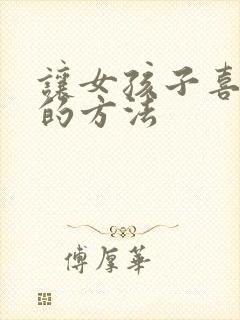 讓女孩子喜
的方法
傅厚華